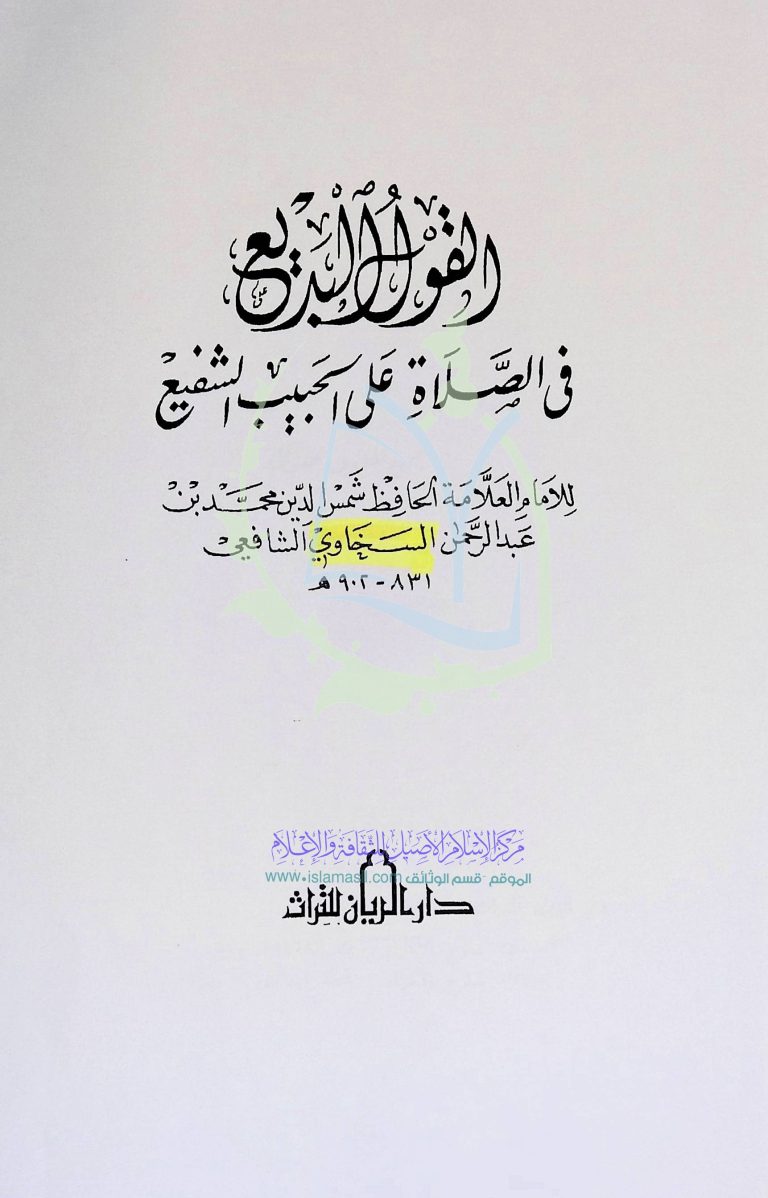 القَوْلُ البَدِيعُ
فِى الصَّلَاةِ عَلَى الحَبِيبِ الشَّفِيعِ
للإمَامِ العَلَّامَة الحَافِظِ شَمْسِ الدِّين محمَّد بْنِ
عَبدِ الرَّحمٰن السَخَاوِيّ الشافعِي
٨٣١ - ٩٠٢ هـ
مركز الإسلام الأصيل للثقافة والإعلام
الموقع - قسم الوثائق www.islamasil.com
دار الريان للتراث